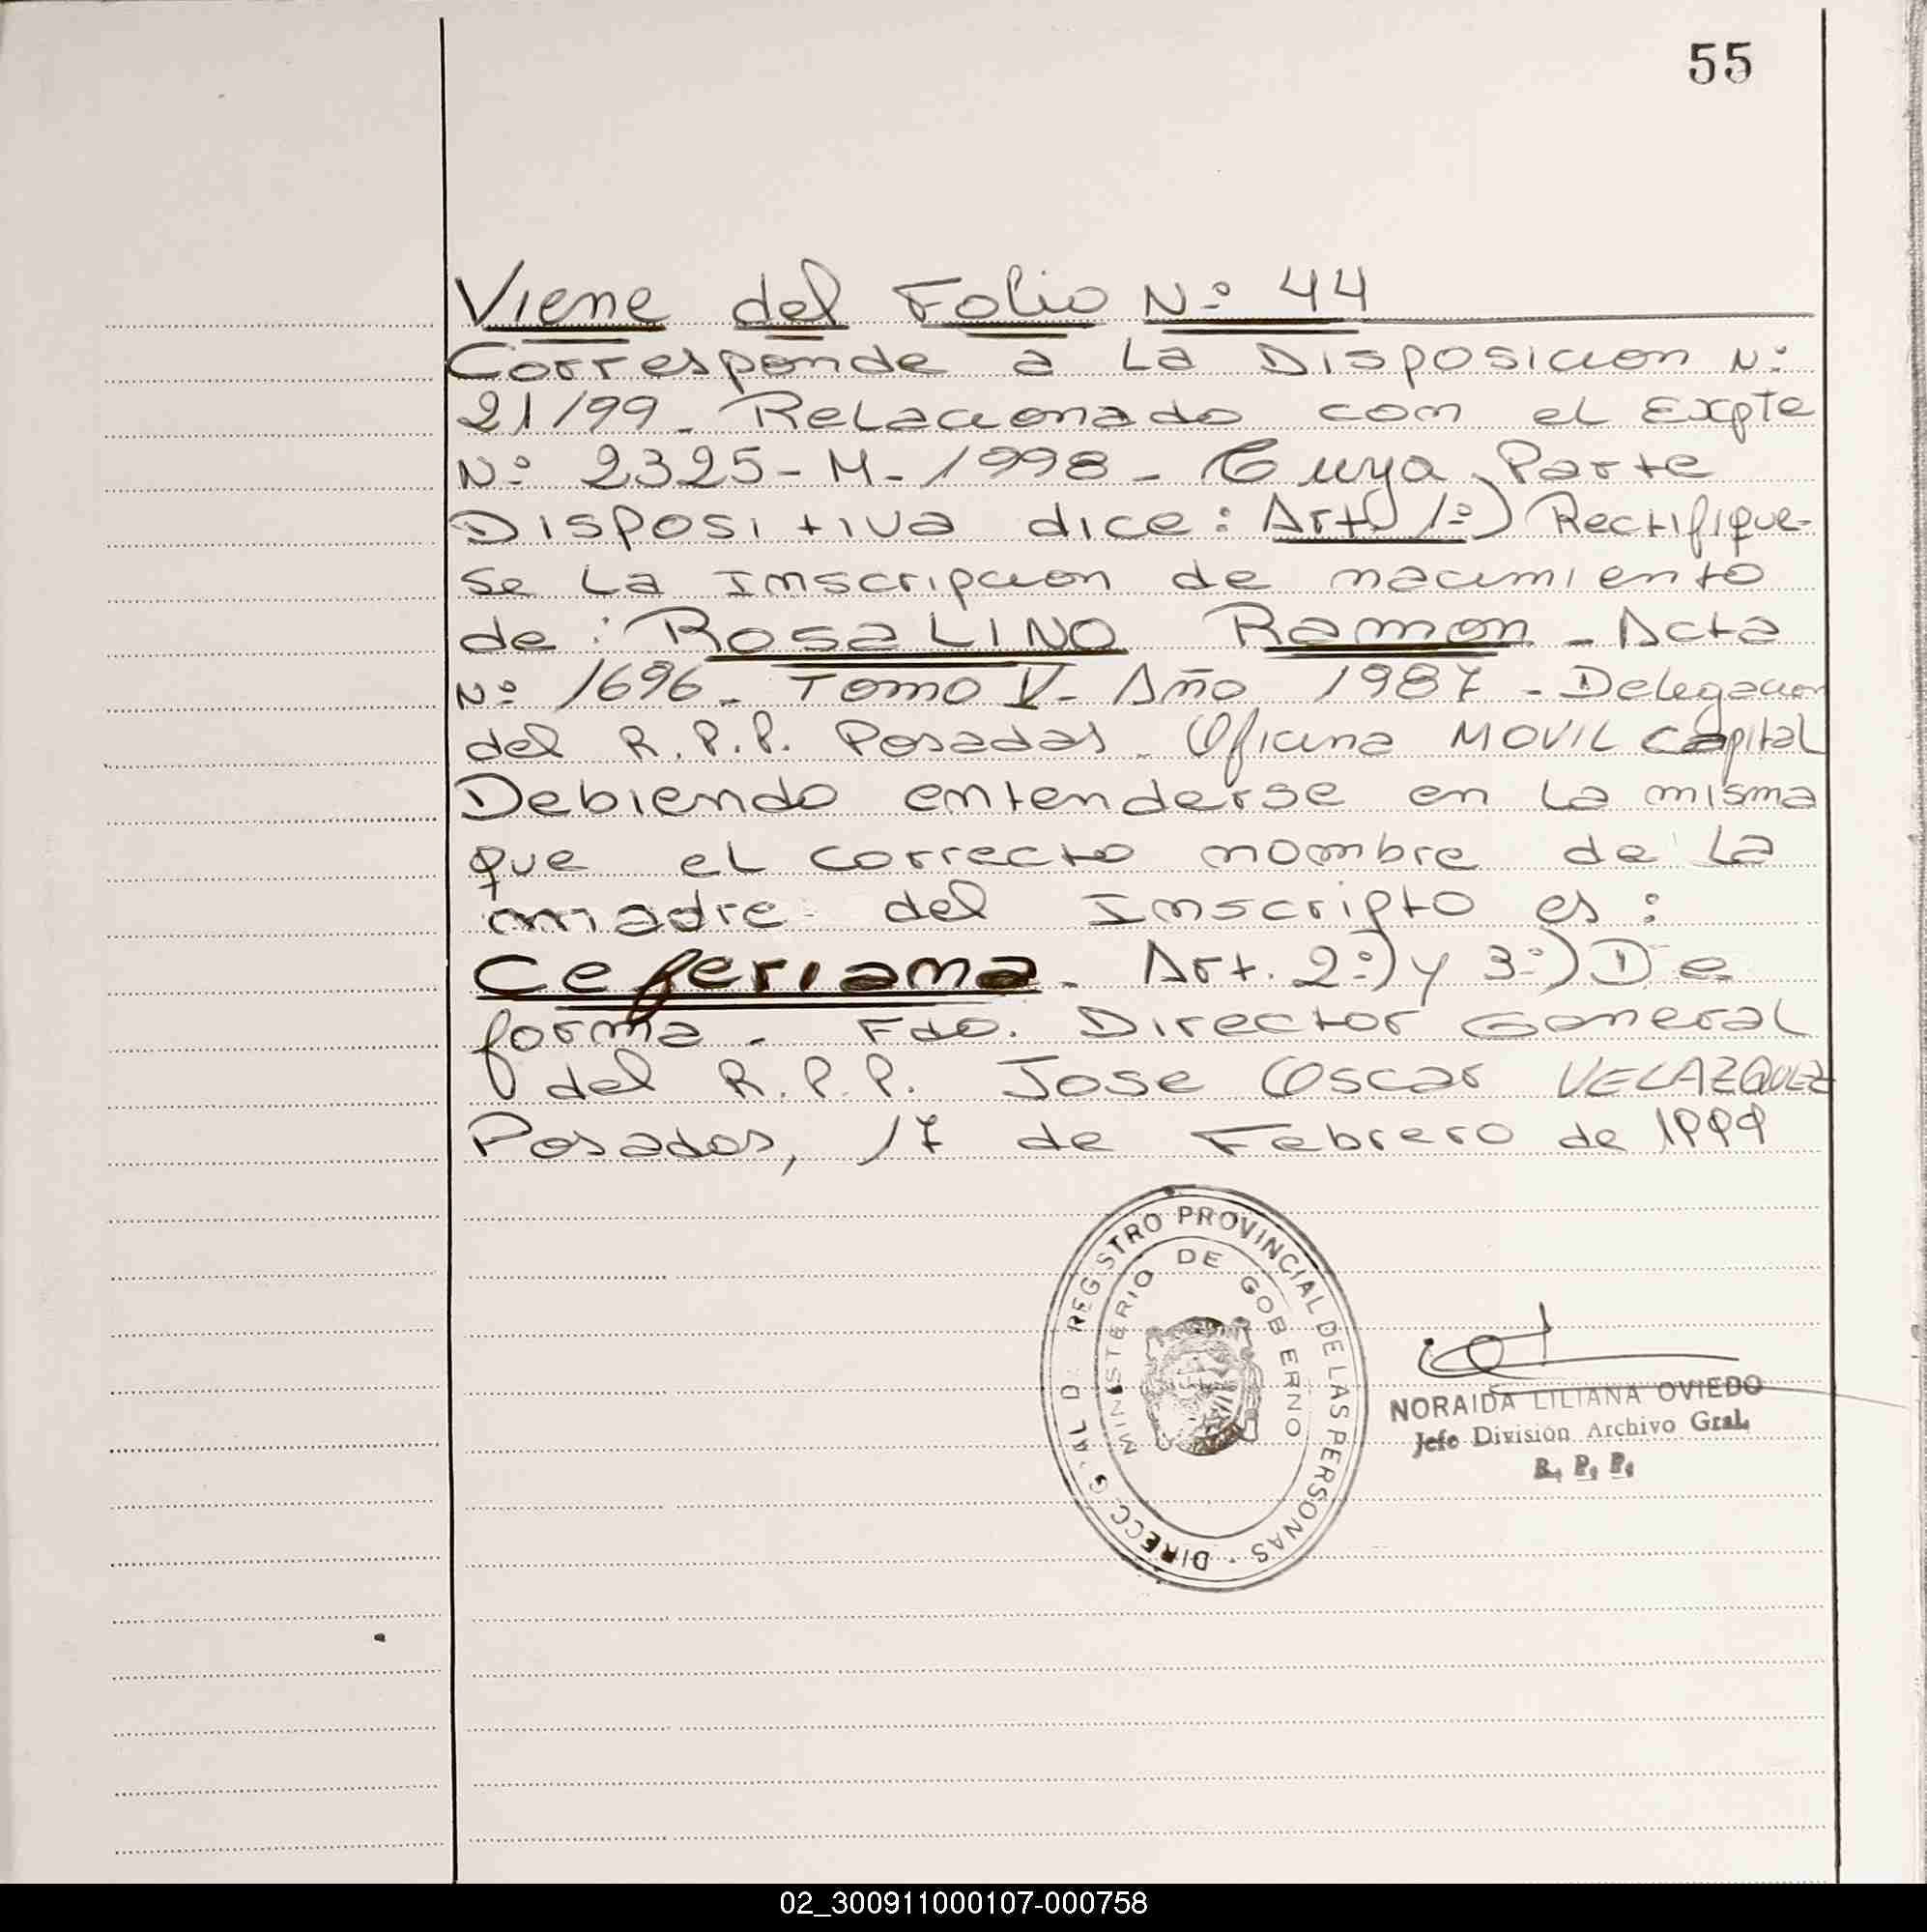 55
Viene del Folio Nº 44
Corresponde a La Disposicion Nº
21/99. Relacionado con el Expte
Nº 2325-M-1998- Cuya Parte
Dispositiva dice: Art. 1º) Rectifique-
se La Inscripcion de nacimiento
de: RosaLINO Ramon - Acta
Nº 1696. Tomo V- Año 1987 - Delegacion
del R.P.P. Posadas. Oficina MOVIL Capital
Debiendo entenderse en La misma
que el correcto nombre de La
madre del Inscripto es:
Ceferiana. Art. 2º) y 3º) De
forma. Fdo. Director General
del R.P.P. Jose Oscar VELAZQUEZ
Posadas, 17 de Febrero de 1999
REGISTRO PROVINCIAL DE LAS PERSONAS
MINISTERIO DE GOBIERNO
DIRECC G AL D
NORAIDA LILIANA OVIEDO
Jefe División Archivo Gral.
R. P. P.
02_300911000107-000758